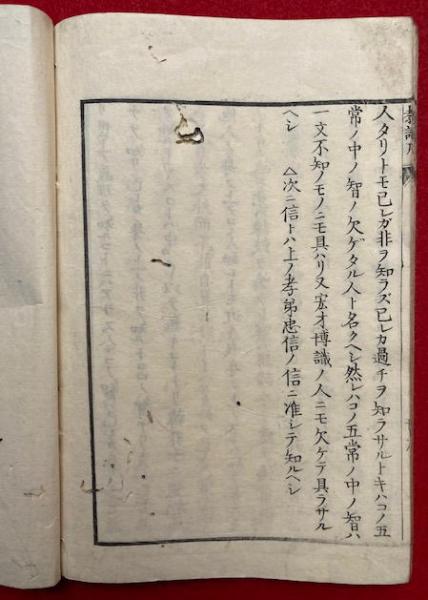 人タリトモ己レガ非ヲ知ラズ己レカ過チヲ知ラサルトキハコノ五
常ノ中ノ智ノ欠ゲタル人ト名クヘシ然レハコノ五常ノ中ノ智ハ
一文不知ノモノニモ具ハリ又宏才博識ノ人ニモ欠ケテ具ラサル
ヘシ　△次ニ信トハ上ノ孝弟忠信ノ信ニ准シテ知ルヘシ